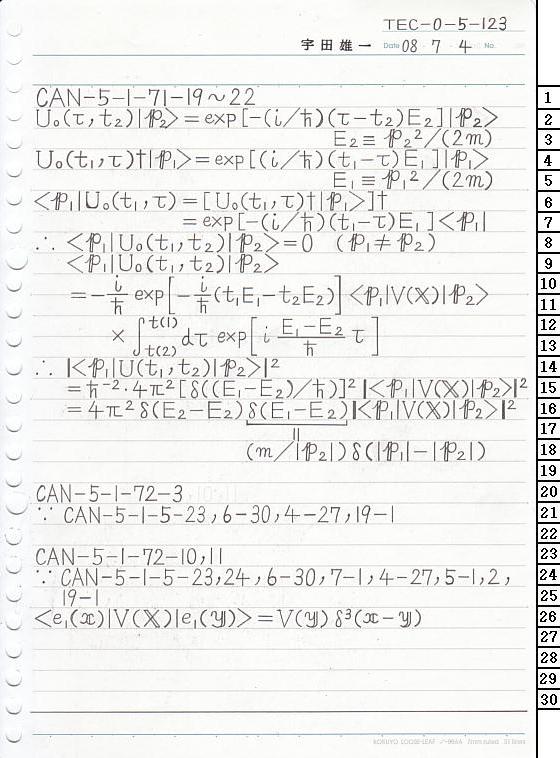 TEC-0-5-123
宇田雄一 Date 08 7 4 No.
CAN-5-1-71-19~22
U₀(τ,t₂)|𝕡₂> = exp[-(i/ħ)(τ-t₂)E₂]|𝕡₂>
E₂ ≡ 𝕡₂²/(2m)
U₀(t₁,τ)†|𝕡₁> = exp[(i/ħ)(t₁-τ)E₁]|𝕡₁>
E₁ ≡ 𝕡₁²/(2m)
<𝕡₁|U₀(t₁,τ) = [U₀(t₁,τ)†|𝕡₁>]†
= exp[-(i/ħ)(t₁-τ)E₁]<𝕡₁|
∴ <𝕡₁|U₀(t₁,t₂)|𝕡₂> = 0 (𝕡₁≠𝕡₂)
<𝕡₁|U₀(t₁,t₂)|𝕡₂>
= -i/ħ exp[-i/ħ(t₁E₁-t₂E₂)]<𝕡₁|V(𝕏)|𝕡₂>
× ∫t(2)t(1) dτ exp[i (E₁-E₂)/ħ τ]
∴ |<𝕡₁|U(t₁,t₂)|𝕡₂>|²
= ħ⁻²·4π²[δ((E₁-E₂)/ħ)]²|<𝕡₁|V(𝕏)|𝕡₂>|²
= 4π²δ(E₂-E₂)δ(E₁-E₂)|<𝕡₁|V(𝕏)|𝕡₂>|²
||
(m/|𝕡₂|)δ(|𝕡₁|-|𝕡₂|)
CAN-5-1-72-3
∵ CAN-5-1-5-23,6-30,4-27,19-1
CAN-5-1-72-10,11
∵ CAN-5-1-5-23,24,6-30,7-1,4-27,5-1,2,
19-1
<e₁(𝕩)|V(𝕏)|e₁(𝕪)> = V(𝕪)δ³(𝕩-𝕪)
1
2
3
4
5
6
7
8
9
10
11
12
13
14
15
16
17
18
19
20
21
22
23
24
25
26
27
28
29
30
KOKUYO LOOSE-LEAF 7mm ruled 31 lines